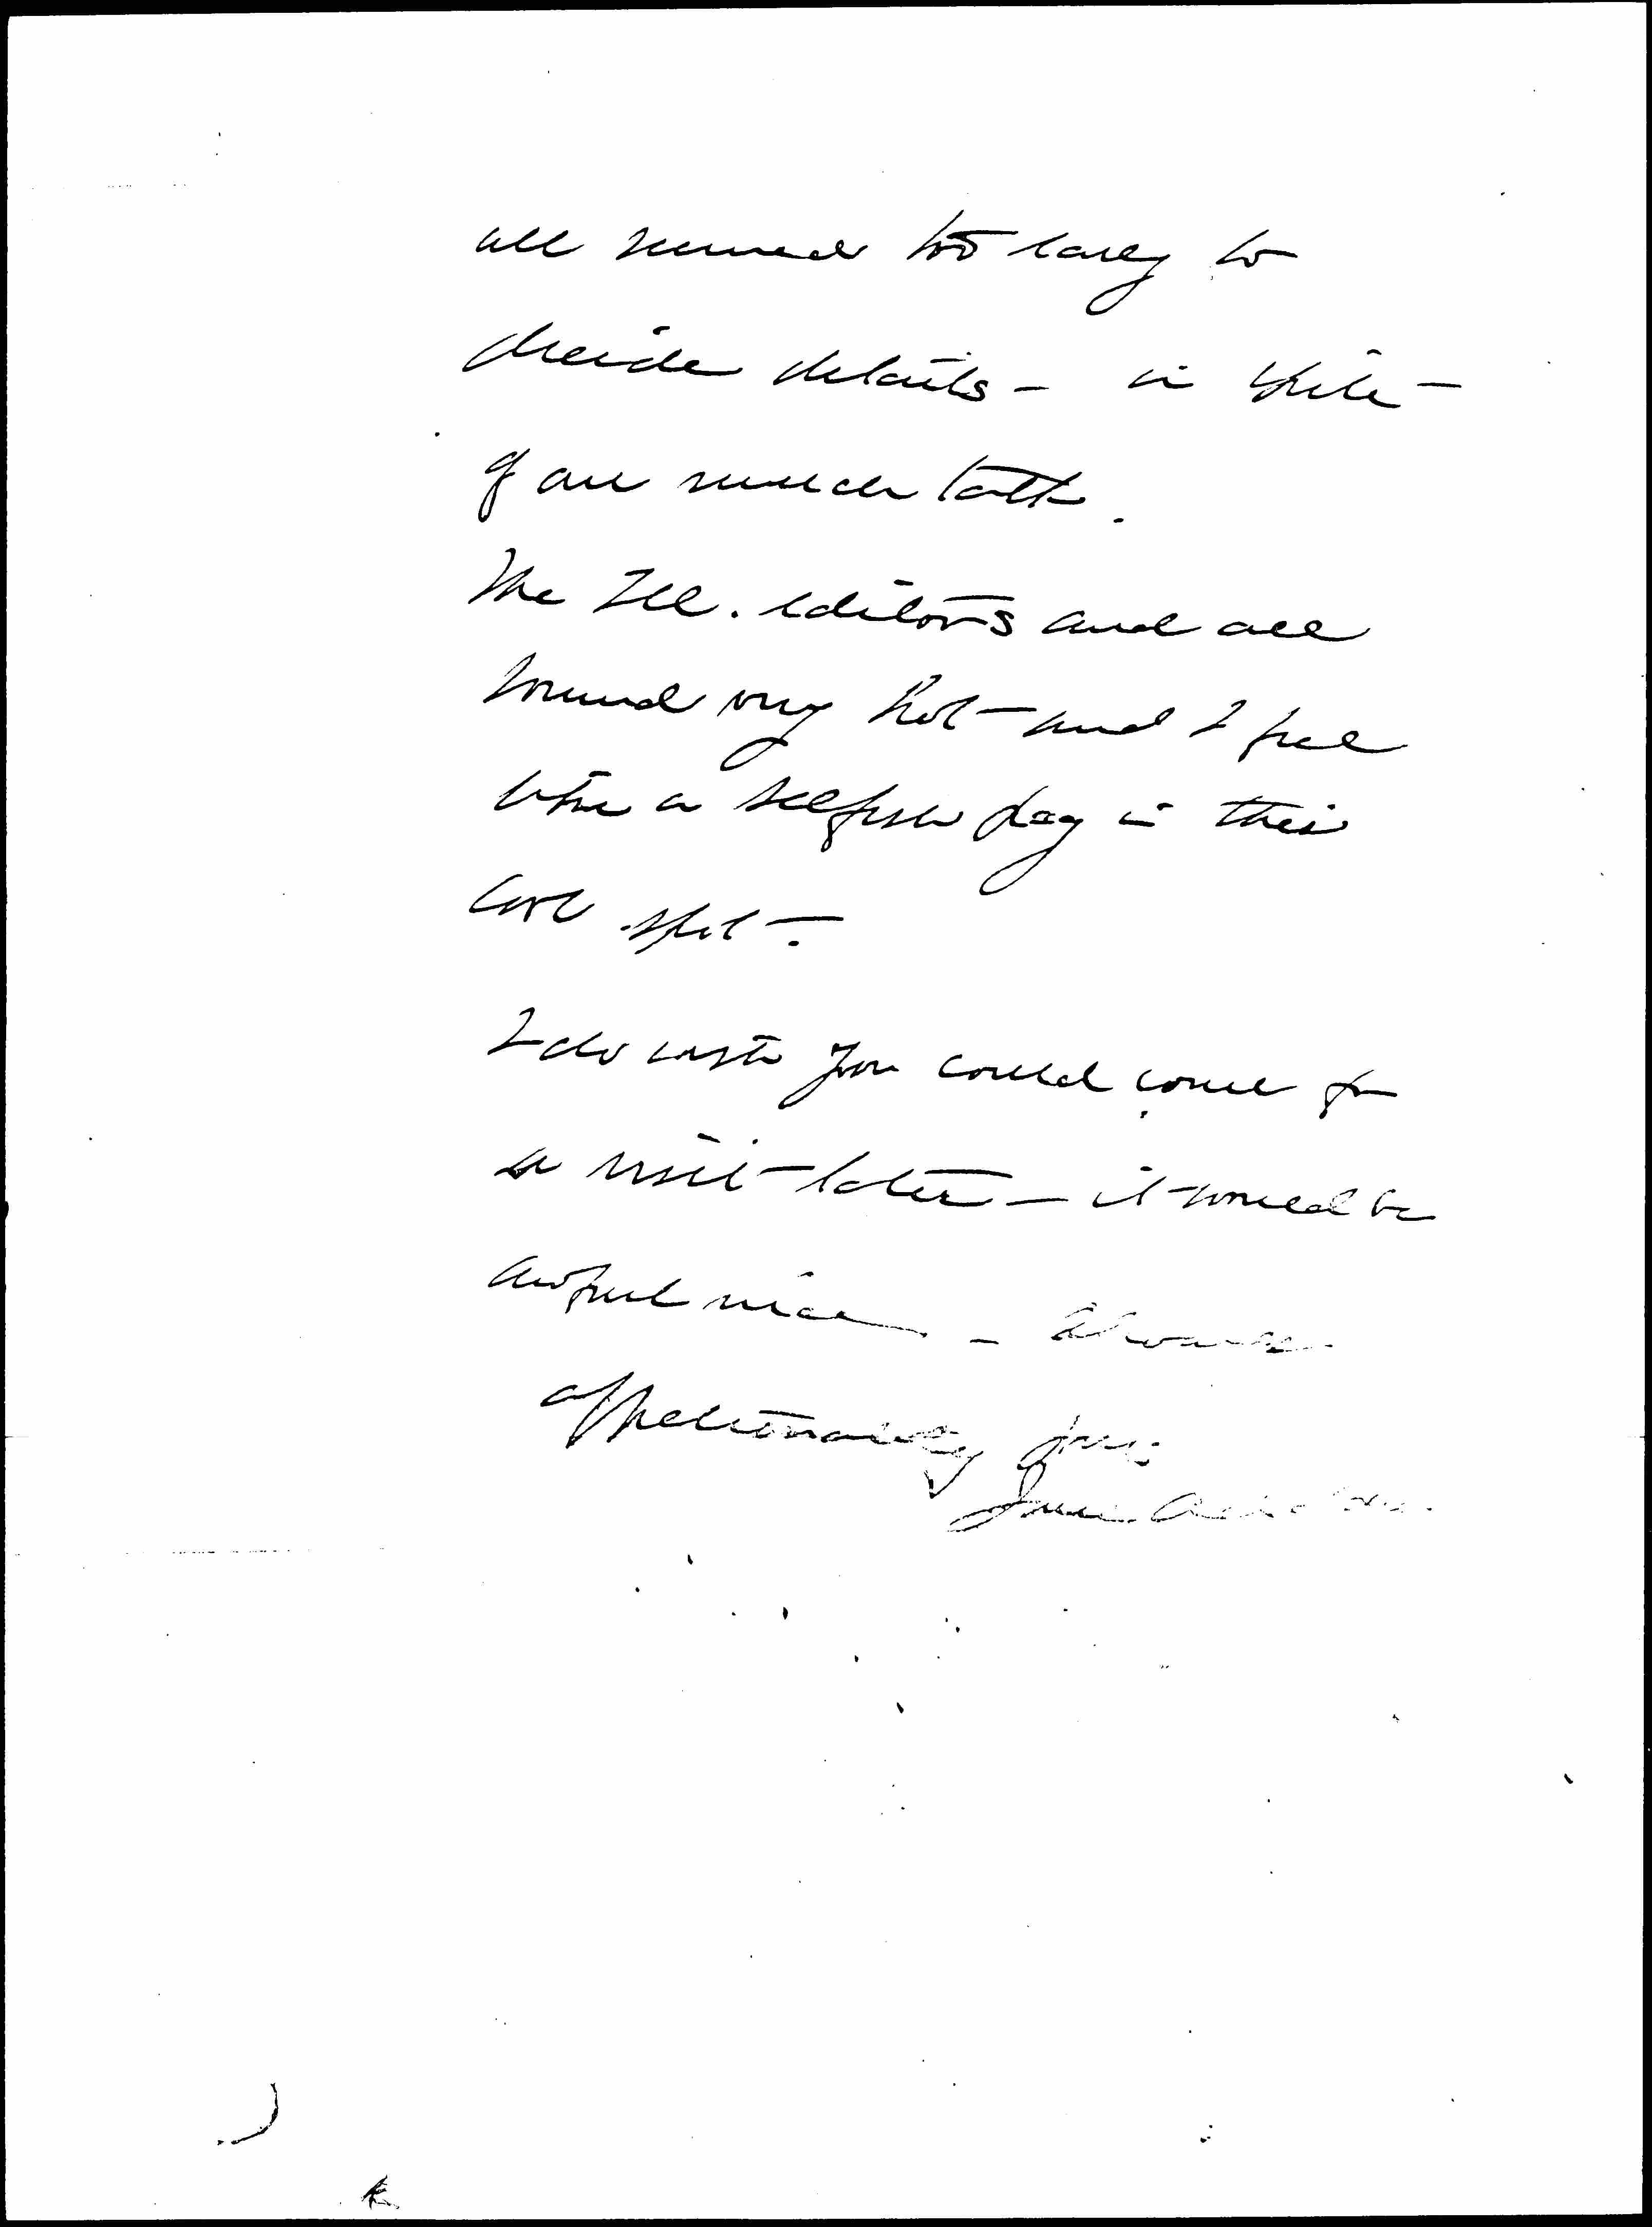 all seemed too early to
decide details - in spite -
of our much talk.
The Ill. editors and all
sound very hot - and I feel
like a selfish dog in this
cool spot -.
I do wish you could come for
a visit - later - it would be
awful nice - Always
affectionately yours